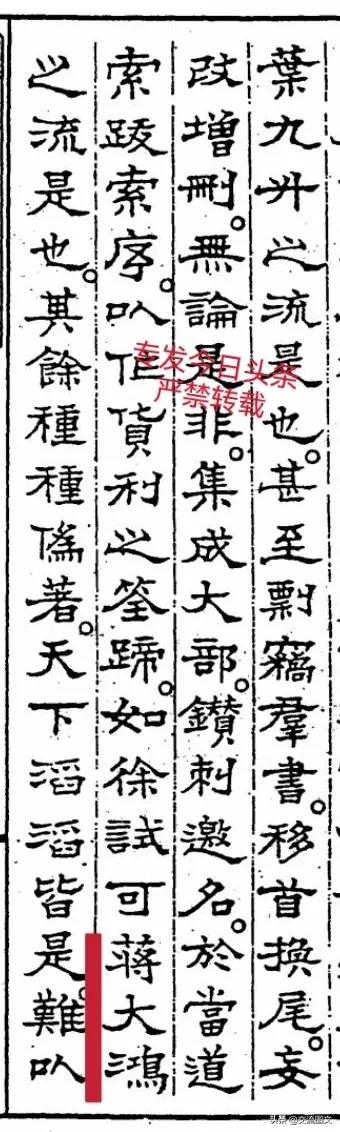 葉九升之流是也。甚至剽竊羣書。移首換尾。妄
改增刪。無論是非。集成大部。鑽刺邀名。於當道
索跋索序。以作貨利之筌蹄。如徐試可蔣大鴻
之流是也。其餘種種偽著。天下滔滔皆是。難以
专发今日头条
严禁转载
头条 @交流图文